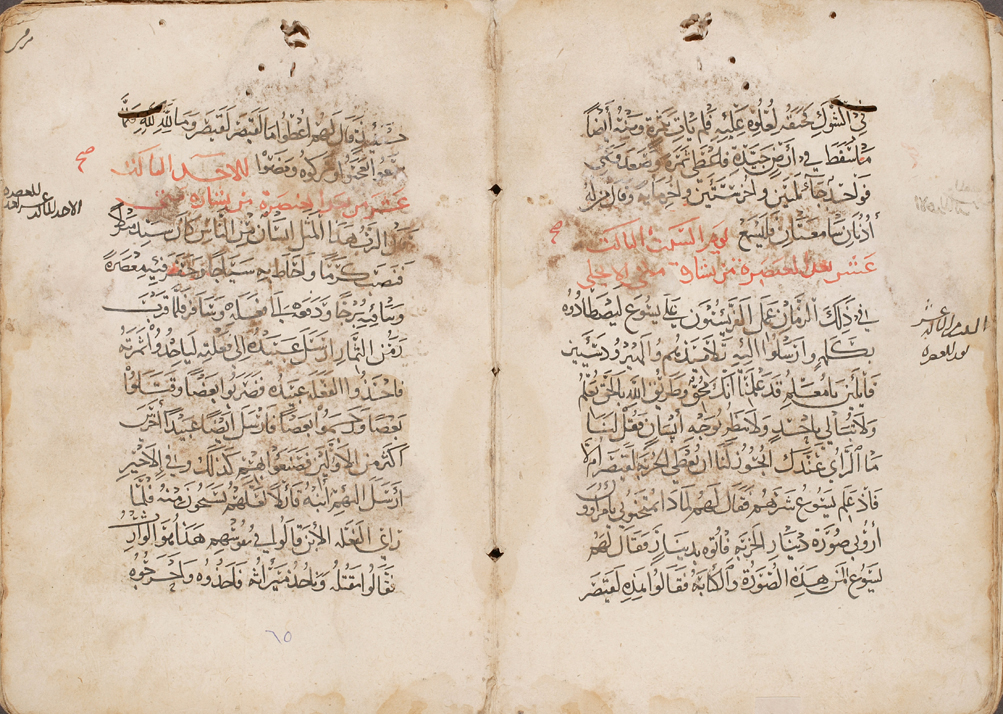 في الشوك فخنقه لعلوه عليه فلم يات بثمرة ومنه ايضاً
ما سقط في ارض جيدة فاعطى ثمره وصعد ونمى
فواحد جاء بثلثين واخر بستين واخر بمايه وقال من له
أذنان سامعتان فليسمع يوم السبت الثالث
عشر بعد العنصرة من بشارة متى الانجيلي
في ذلك الزمان عمل الفريسيون على يسوع ليصطادوه
بكلمه وارسلوا اليه تلاميذهم والهيرودسيين
قايلين يا معلم قد علمنا انك محق وطريق الله بالحق تعلم
ولا تبالي باحد ولا تنظر لوجه أنسان فقل لنا
ما الراي عندك ايجوز لنا ان نعطي الجزية لقيصر ام لا
فاذ علم يسوع شرهم فقال لهم لماذا تمتحنوني يا مراوون
أروني صورة دينار الجزيه فاتوه بدينار فقال لهم
يسوع لمن هذه الصورة والكتابه فقالوا له لقيصر
العشر الثالث عشر
بعد العنصره
حينيذ قال لهم اعطوا ما لقيصر لقيصر وما لله لله فلما
سمعوا تعجبوا وتركوه ومضوا للاحد الثالث
عشر من بعد العنصرة من بشارة متى
قال الرب هذا المثل انسان من الناس كان سيد
فنصب كرما واحاط به سياجا وحفر فيه معصرة
وبنا فيه برجا ودفعه الى فعله وسافر فلما قرب
زمن الثمار ارسل عبيده الى فعلته لياخذوا ثمرته
فاخذوا الفعلة عبيده فضربوا بعضا وقتلوا
بعضا ورجموا بعضا فارسل ايضا عبيدا أخر
اكثر من الأولين فصنعوا بهم كذلك وفي الاخير
ارسل اليهم ابنه قايلا لعلهم يستحون من ابني فلما
راى الفعله الأبن قالوا في نفوسهم هذا هو الوارث
تعالوا نقتله وناخذ ميراثه فاخذوه واخرجوه
الاحد الثالث عشر بعد العنصره
٦٥